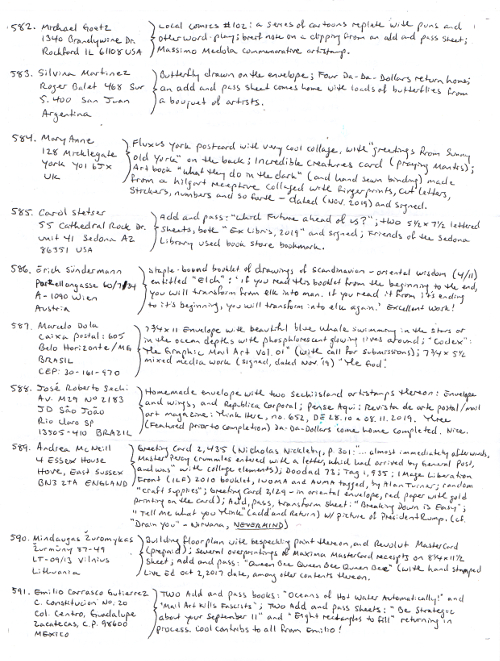 582. Michael Goetz
1340 Brandywine Dr.
Rockford IL 61108 USA
Local Comics #102: a series of cartoons replete with puns and
other word-play; brief note on a clipping from an add and pass sheet;
Massimo Medola commemorative artistamp.
583. Silvina Martinez
Roger Balet 468 Sur
5.400 San Juan
Argentina
Butterfly drawn on the envelope; Four Da-Da-Dollars return home;
an add and pass sheet comes home with loads of butterflies from
a bouquet of artists.
584. Mary Anne
128 Micklegate
York YO1 6JX
UK
Fluxus York postcard with very cool collage, with "greetings from sunny
old York" on the back; Incredible Creatures card (praying Mantis);
Art book "what they do in the dark" (and hand sewn binding) made
from a Hilgart collaged with fingerprints, cut letters,
stickers, numbers and so forth - dated (Nov. 2019) and signed.
585. Carol Stetser
55 Cathedral Rock Dr.
unit 41 Sedona AZ
86351 USA
Add and pass: "which Future ahead of us?"; two 5½ x 7½ lettered
sheets, both "Ex Libris, 2019" and signed; Friends of the Sedona
Library used book store bookmark.
586. Erich Sündermann
Porzellangasse 60/7/34
A-1090 Wien
Austria
staple-bound booklet of drawings of scandinavian-oriental wisdom (4/11)
entitled "Elch"; "if you read this booklet from the beginning to the end,
you will transform from elk into man. if you read it from its ending
to it's beginning, you will transform into elk again." Excellent work!
587. Marcelo Dola
Caixa postal: 605
Belo Horizonte/MG
BRASIL
CEP: 30-161-970
7¾ x 11 Envelope with beautiful blue whale swimming in the stars or
in the ocean depths with phosphorescent glowing lives around; "Codex:
The Graphic Mail Art Vol. 01" (with call for submissions); 7¾ x 5½
mixed media work (signed, dated Nov. 19) "He God."
588. José Roberto Sechi
Av. M29 Nº 2183
JD São João
Rio Claro SP
13505-410 BRAZIL
Homemade envelope with two Sechiisland artistamps thereon: Envelope
and wings, and Republica Corporal; Pense Aqui: Revista de arte postal/mail
art magazine: Think Here, no. 652, DE 28.10 a 08.11.2019. Three
(Featured prior to completion) Da-Da-Dollars come home completed. Nice.
589. Andrea McNeill
4 Essex House
Hove, East Sussex
BN3 2TA ENGLAND
Greeting Card 2,435 (Nicholas Nickleby, p. 301: "... almost immediately afterwards,
Master Percy Crummles entered with a letter, which had arrived by General Post,
and was" with collage elements); Doodad 73; Tag 1,935; Image Liberation
Front (ILF) 2010 booklet, IUOMA and AUMA tagged, by Alan Turner; random
"craft supplies"; Greeting Card 2,124 - in oriental envelope, red paper with gold
printing on the card); Add, pass, transform sheet: "Breaking Down is Easy";
"Tell me what you think" (add and return) w/ picture of President Rump. (cf.
"Drain you" - Nirvana, NEVERMIND)
590. Mindaugas Žuromskas
Žurmūnų 87-49
LT-09113 Vilnius
Lithuania
Building floorplan with bespeckly paint thereon, and Revolut MasterCard
(prepaid); several overprintings of Maxima MasterCard receipts on 8¼ x 11½
sheet; add and pass: "Queen Bee Queen Bee Queen Bee" (with hand stopped
Live Ed Oct 2, 2019 date, among other contents thereon.
591. Emilio Carrasco Gutierrez
C. Constitucion No. 20
Col. Centro, Guadalupe
Zacatecas, C.P. 98600
MEXICO
Two Add and Pass books: "Oceans of Hot Water Automatically!" and
"Mail Art Kills Fascists"; Two Add and Pass Sheets: "Be Strategic
about your September 11" and "Eight rectangles to fill" returning in
process. Cool contribs to all from Emilio!